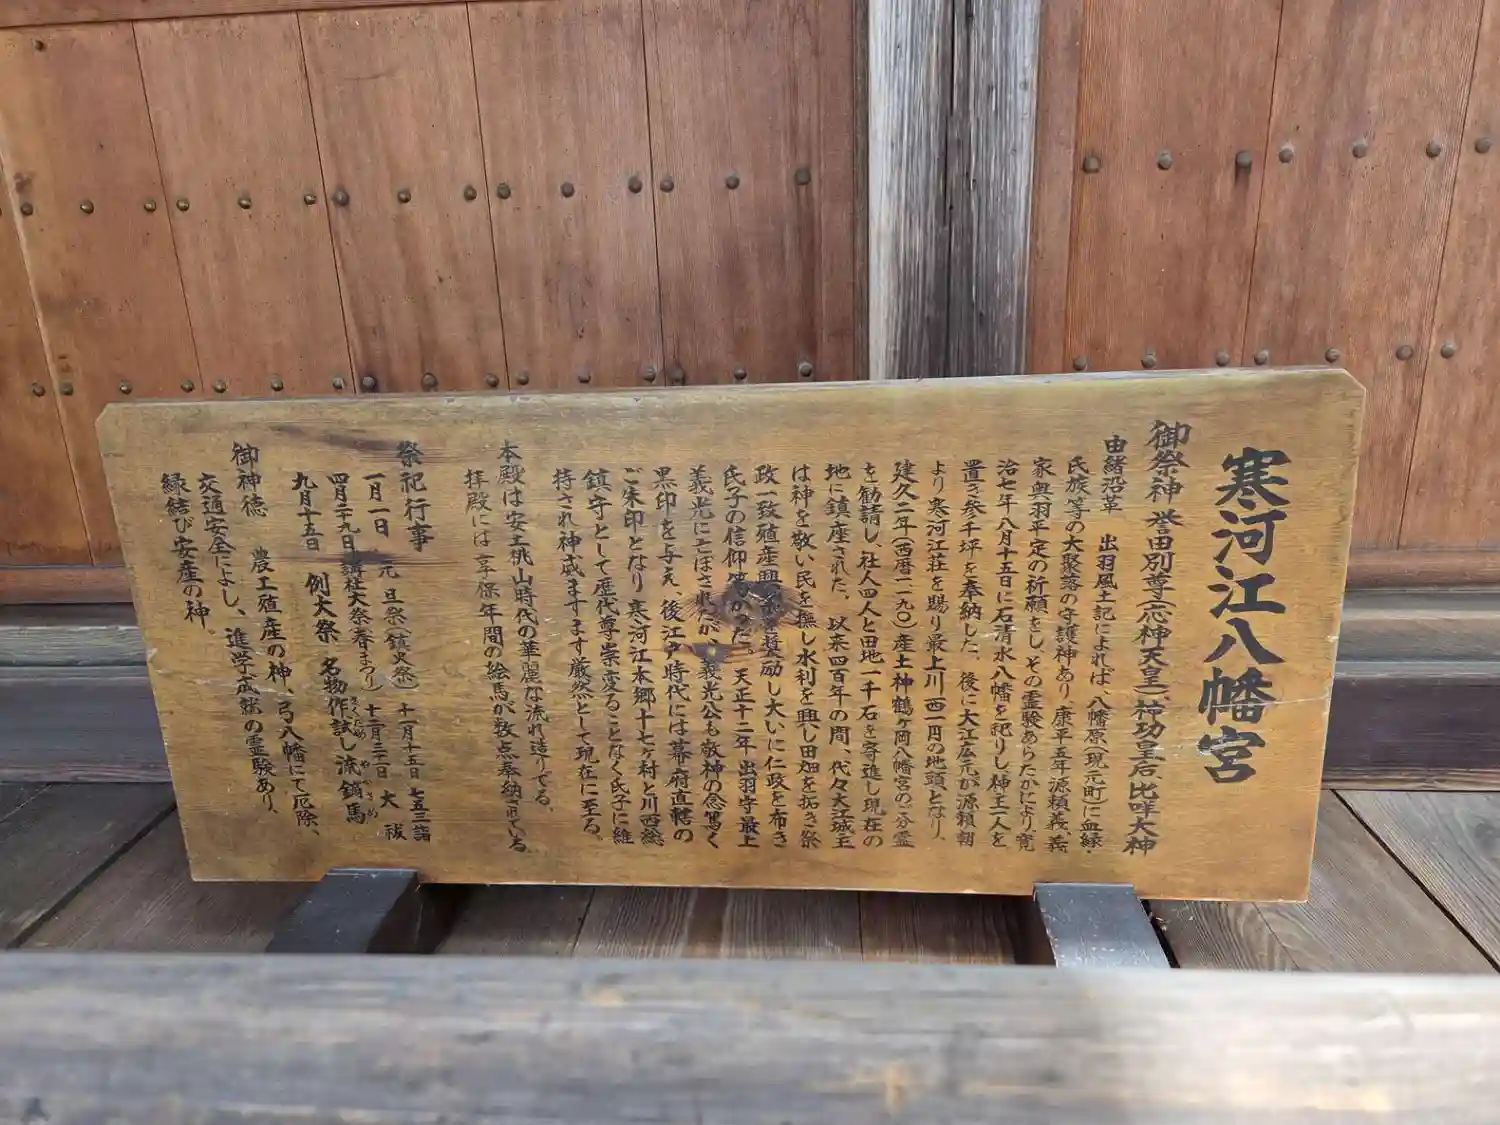 寒河江八幡宮
御祭神 誉田別尊(応神天皇)、神功皇后、比咩大神
由緒沿革 出羽風土記によれば、八幡原(現元町)に血縁・
氏族等の大聚落の守護神あり、康平五年源頼義、義
家奥羽平定の祈願をし、その霊験あらたかにより、寛
治七年八月十五日に石清水八幡を祀りし神主二人を
置き参千坪を奉納した、後に大江広元が源頼朝
より寒河江荘を賜り最上川西一円の地頭となり、
建久二年(西暦一一九〇)産土神鶴ヶ岡八幡宮のご分霊
を勧請し、社人四人と田地一千石を寄進し現在の
地に鎮座された、以来四百年の間、代々大江城主
は神を敬い民を撫し水利を興し田畑を拓き祭
政一致殖産興 奨励し大いに仁政を布き
氏子の信仰篤かった。天正十二年出羽守最上
義光に亡ぼされたが、義光公も敬神の念篤く
黒印を与え、後江戸時代には幕府直轄の
ご朱印となり寒河江本郷十七ヶ村と川西総
鎮守として歴代尊崇変ることなく氏子に維
持され神威ますます厳然として現在に至る。
本殿は安土桃山時代の華麗な流れ造りである、
拝殿には享保年間の絵馬が数点奉納されている
祭祀行事
一月一日 元旦祭(鎮火祭) 十一月十五日 七五三詣
四月二十九日 講社大祭(春まつり) 十二月三十一日 大祓
九月十五日 例大祭 名物作試し流鏑馬
さくだめ やぶさめ
御神徳 農工殖産の神、弓八幡にて厄除、
交通安全によし、進学成就の霊験あり、
縁結び安産の神、